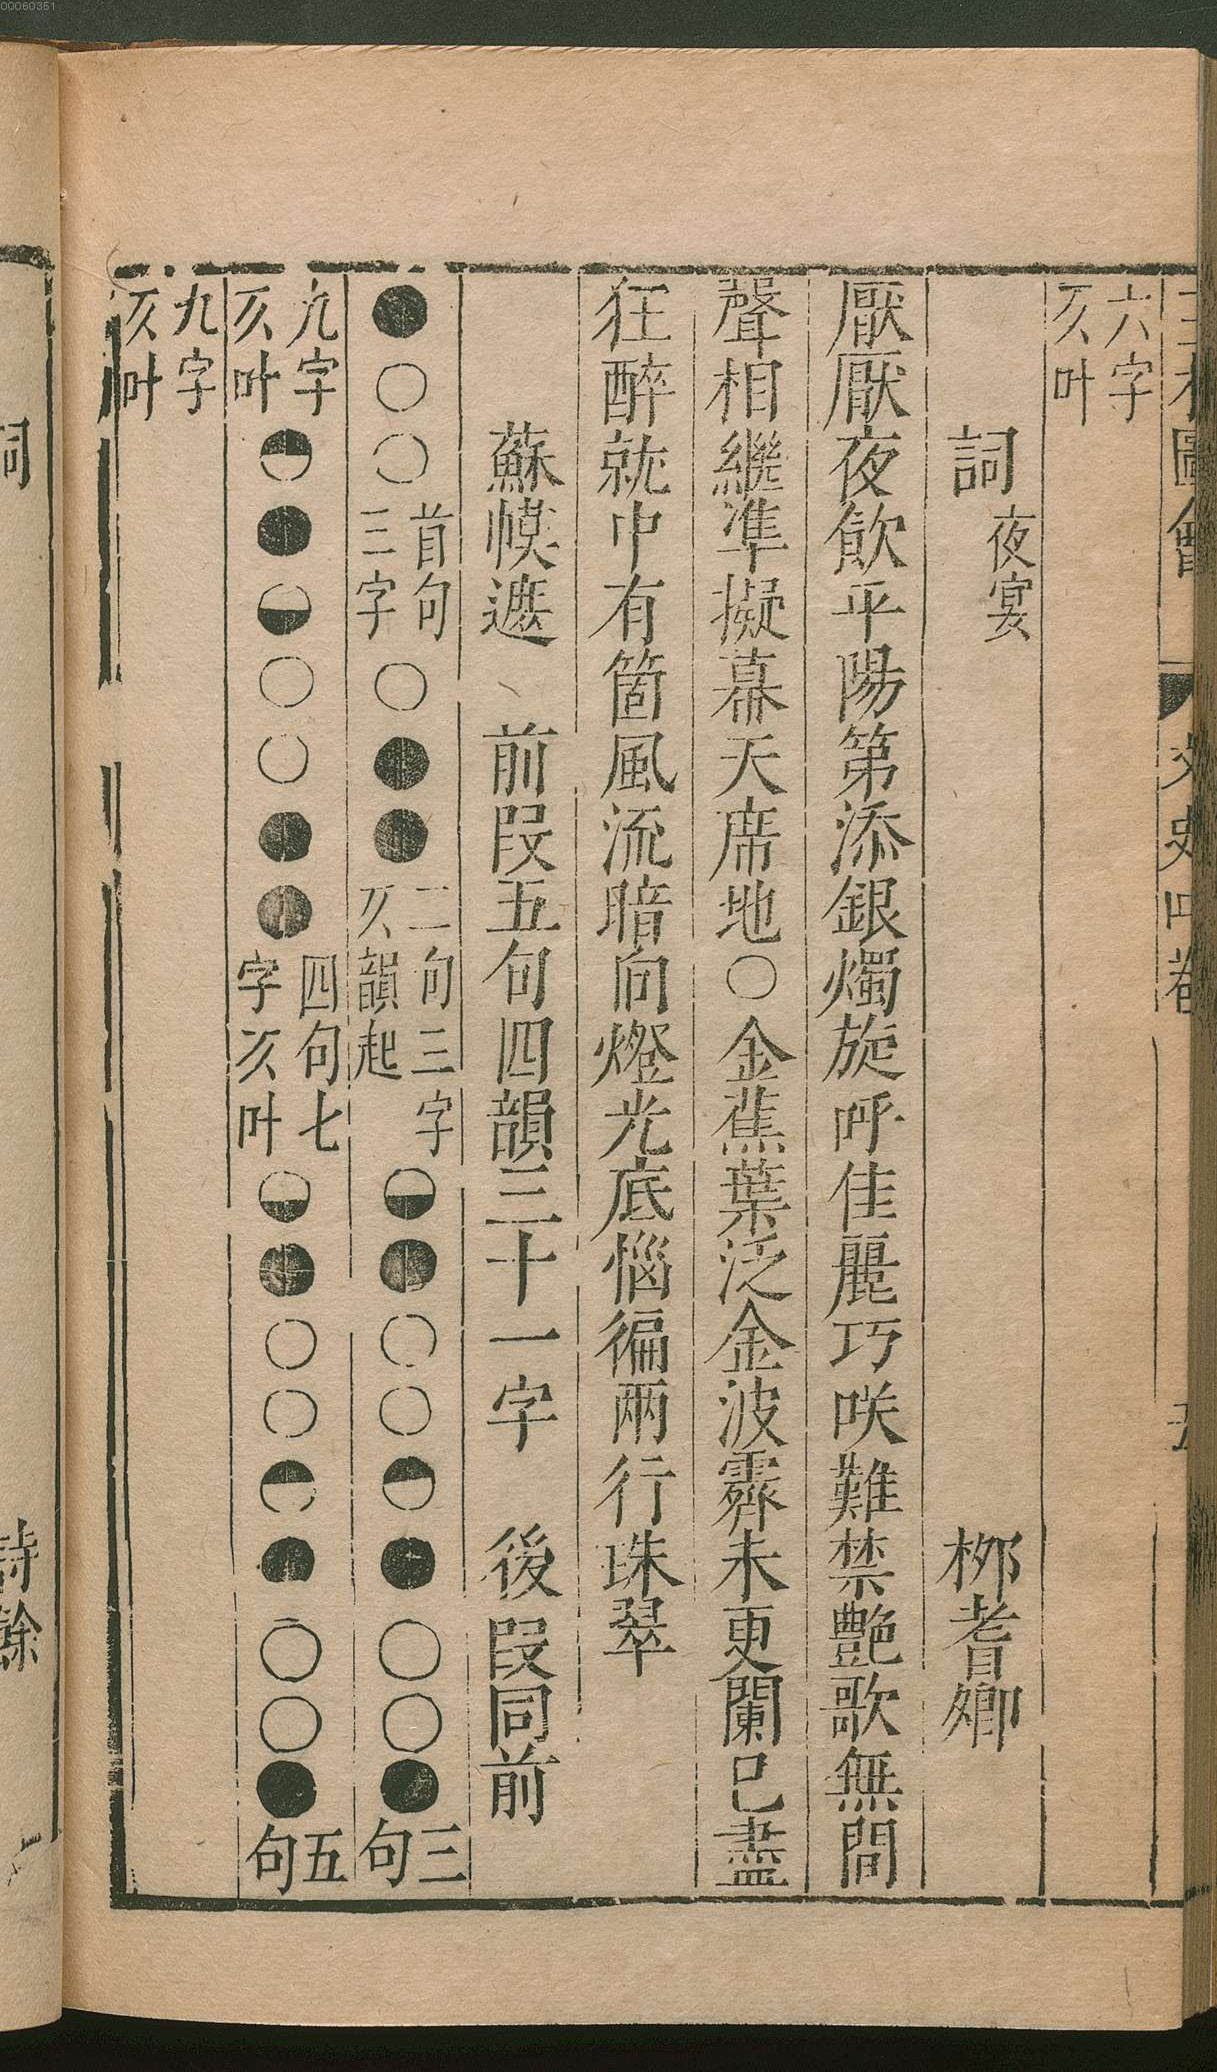 00060351
圖會 文史四卷
六字
仄叶
詞 夜宴 柳耆卿
厭厭夜飲平陽第添銀燭旋呼佳麗巧咲難禁艷歌無間
聲相繼準擬幕天席地○金蕉葉泛金波霽未更闌已盡
狂醉就中有箇風流暗向燈光底惱徧兩行珠翠
蘇幙遮 前段五句四韻三十一字 後段同前
●○○首句三字○●●二句三字仄韻起◒●○○◓●○○●三句
九字仄叶◓●◒○○●●四句七字仄叶◒●○○◓●○○●五句
九字
仄叶
詞
詩餘